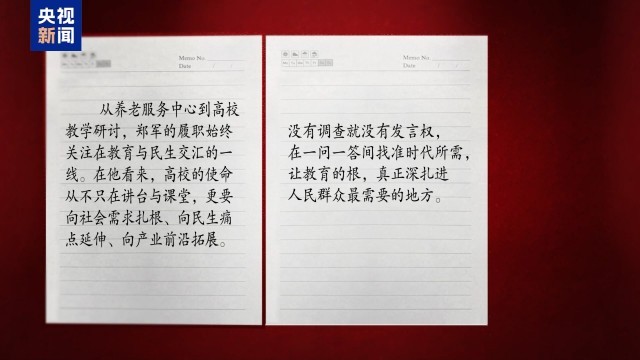 央视
新闻
Memo No.
Date
Memo No.
Date
从养老服务中心到高校
教学研讨，郑军的履职始终
关注在教育与民生交汇的一
线。在他看来，高校的使命
从不只在讲台与课堂，更要
向社会需求扎根、向民生痛
点延伸、向产业前沿拓展。
没有调查就没有发言权，
在一问一答间找准时代所需，
让教育的根，真正深扎进
人民群众最需要的地方。